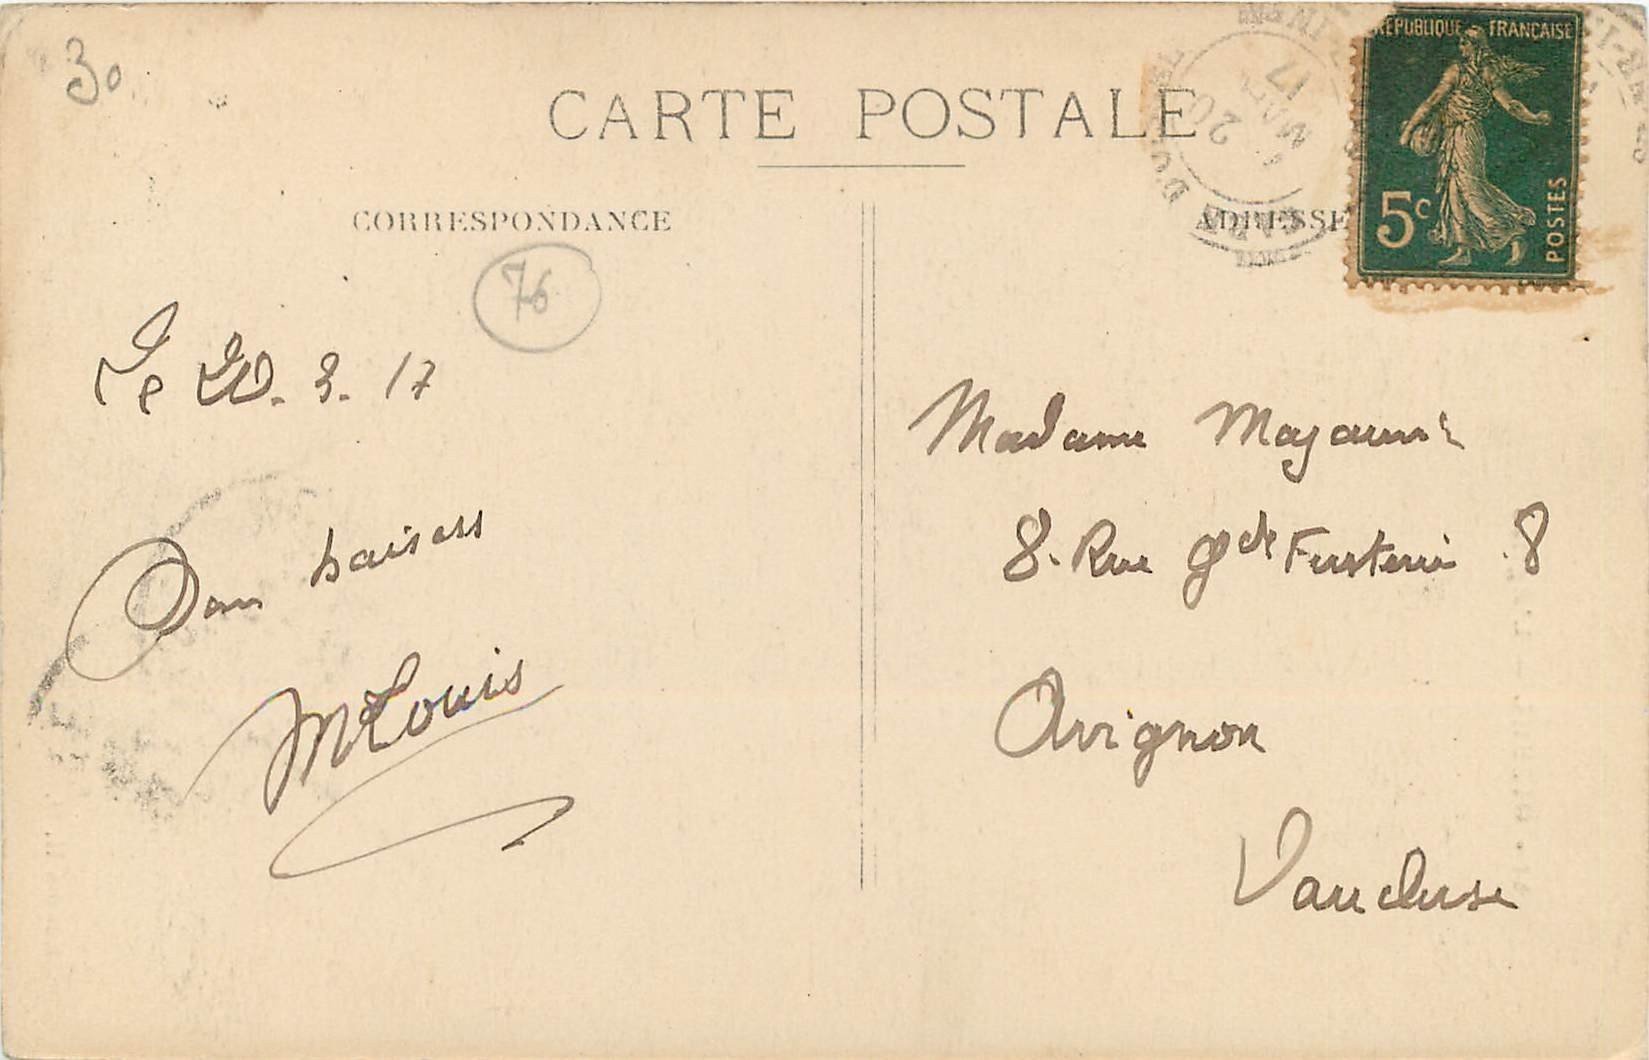 30
CARTE POSTALE
RÉPUBLIQUE FRANÇAISE
5c
POSTES
20
17
CORRESPONDANCE
ADRESSE
76
Le 20. 3. 17
Bons baisers
MLouis
Madame
8. Rue Gde Fusterie 8
Avignon
Vaucluse